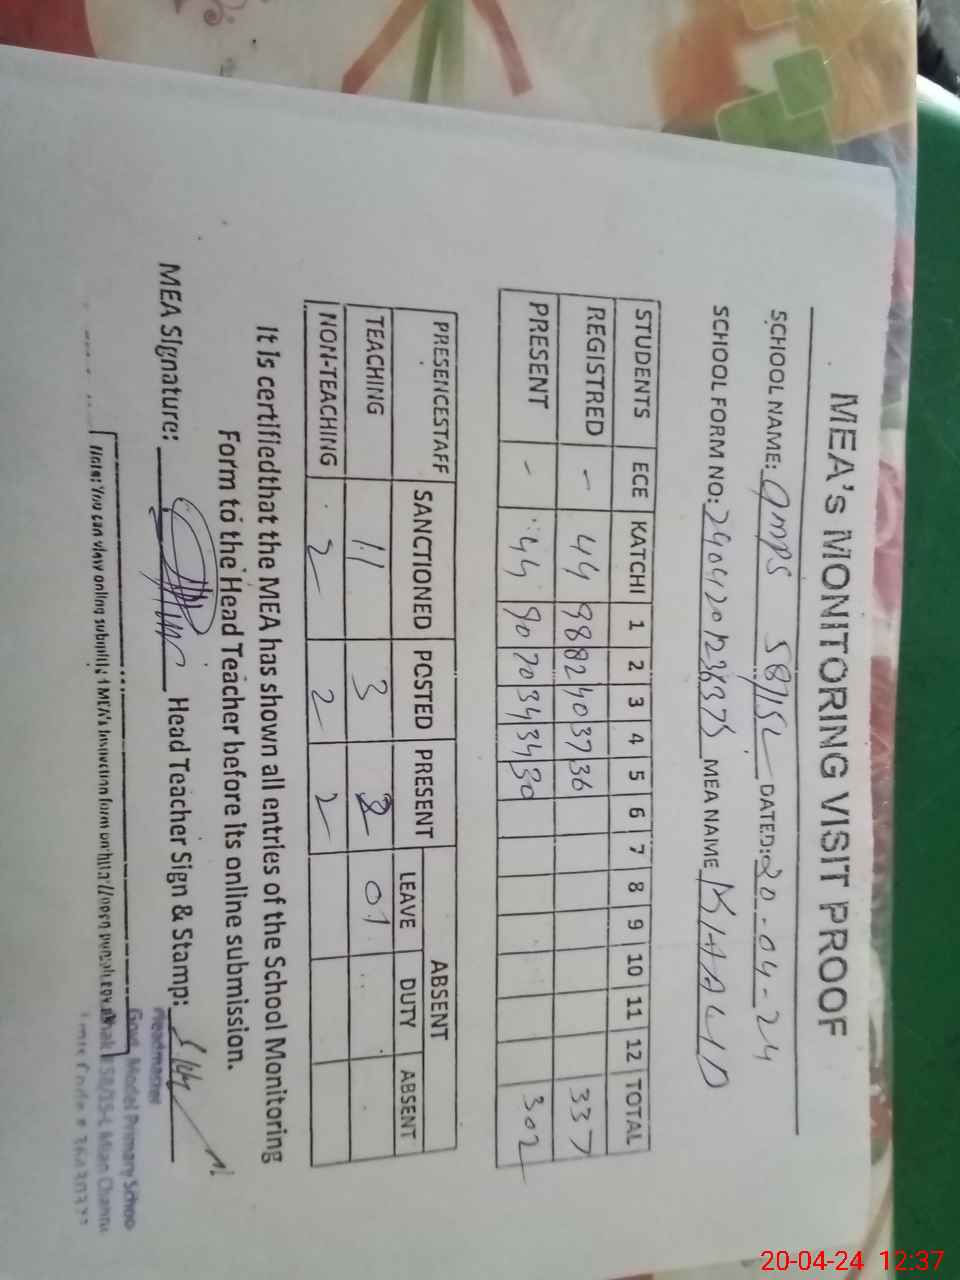 MEA's MONITORING VISIT PROOF
SCHOOL NAME: GMPS 58/15L DATED: 20-04-24
SCHOOL FORM NO: 2404201238375 MEA NAME KHAALID
STUDENTS ECE KATCHI 1 2 3 4 5 6 7 8 9 10 11 12 TOTAL
REGISTRED - 44 98 82 40 37 36 337
PRESENT - 44 90 70 34 34 30 302
PRESENCESTAFF SANCTIONED POSTED PRESENT ABSENT
LEAVE DUTY ABSENT
TEACHING 11 3 2 01
NON-TEACHING 2 2 2
It is certifiedthat the MEA has shown all entries of the School Monitoring
Form to the Head Teacher before its online submission.
MEA Signature: Head Teacher Sign & Stamp:
Headmaster
Govt. Model Primary Schoo
Note: You can view online submitted MEA's Inspection form on http://open.punjab.gov.pk
Chak 58/15-L Mian Channu
20-04-24 12:37